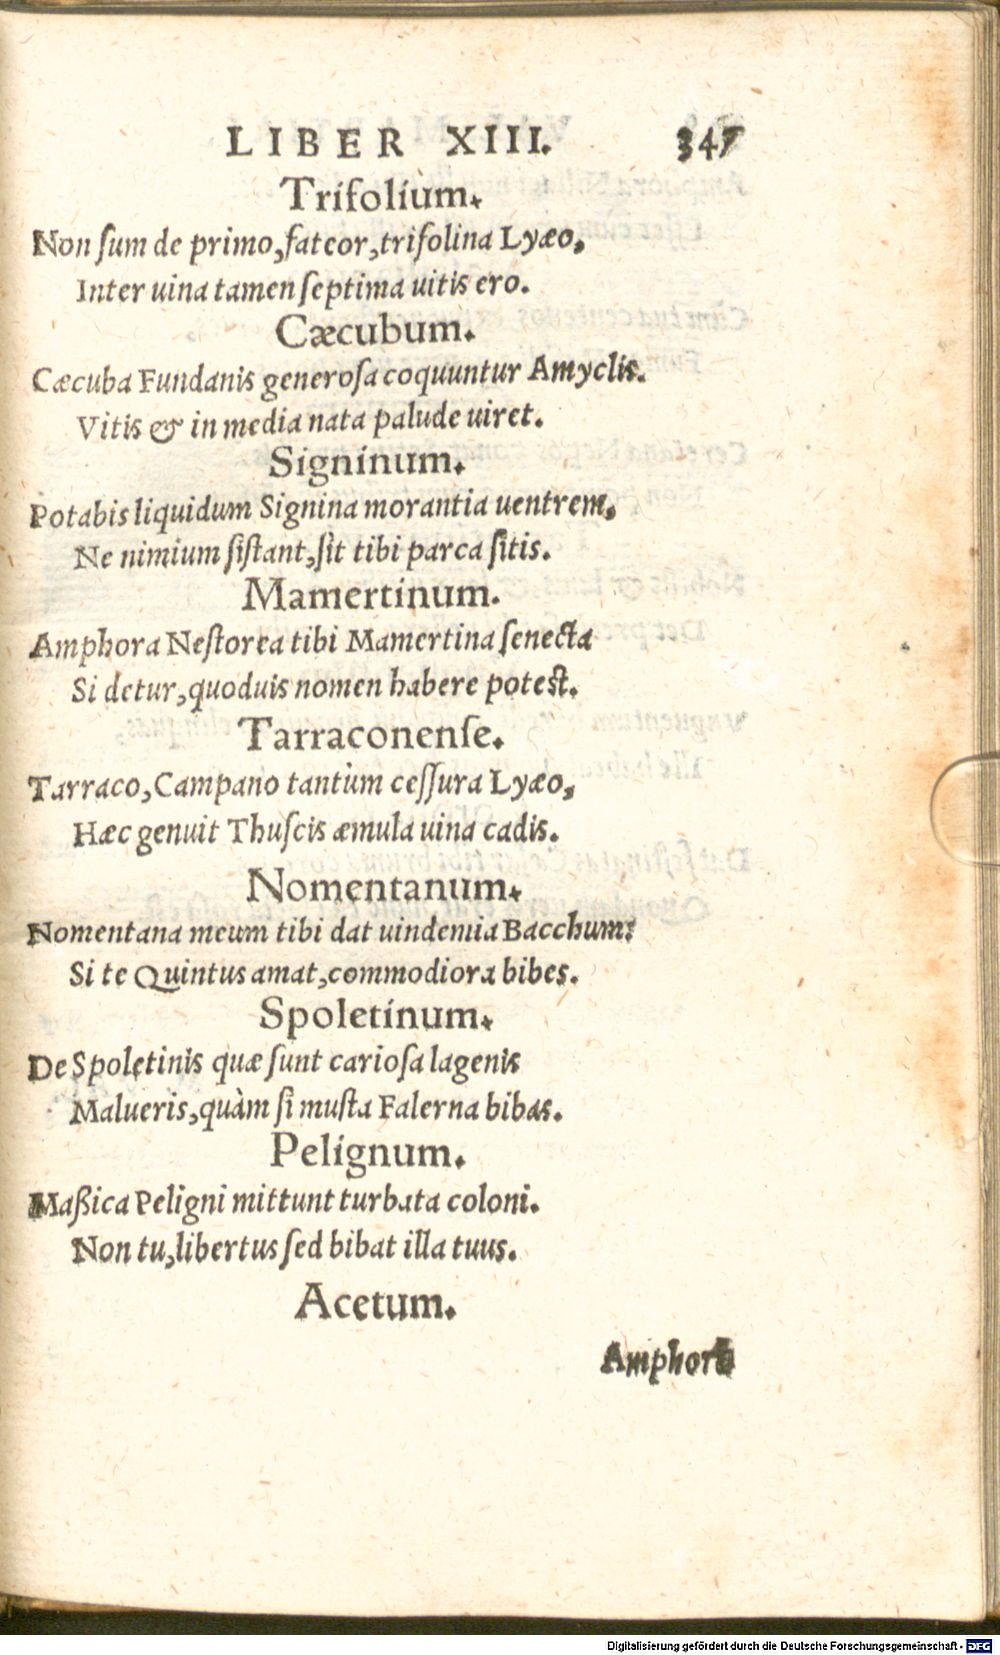 LIBER XIII. 347
Trifolium.
Non ſum de primo, fateor, trifolina Lyæo,
Inter uina tamen ſeptima uitis ero.
Cæcubum.
Cæcuba Fundanis generoſa coquuntur Amyclis.
Vitis & in media nata palude uiret.
Signinum.
Potabis liquidum Signina morantia uentrem,
Ne nimium ſiſtant, ſit tibi parca ſitis.
Mamertinum.
Amphora Neſtorea tibi Mamertina ſenecta
Si detur, quoduis nomen habere poteſt.
Tarraconenſe.
Tarraco, Campano tantùm ceſſura Lyæo,
Hæc genuit Thuſcis æmula uina cadis.
Nomentanum.
Nomentana meum tibi dat uindemia Bacchum:
Si te Quintus amat, commodiora bibes.
Spoletinum.
De Spoletinis quæ ſunt carioſa lagenis
Malueris, quàm ſi muſta Falerna bibas.
Pelignum.
Maßica Peligni mittunt turbata coloni.
Non tu, libertus ſed bibat illa tuus.
Acetum.
Amphora
Digitalisierung gefördert durch die Deutsche Forschungsgemeinschaft - DFG